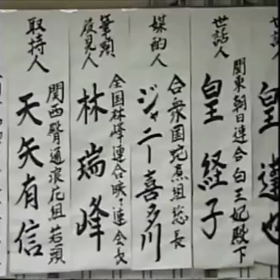 世話人
関東朝日連合白王妃殿下
皇 経子
媒酌人
合衆国宛煮組総長
ジャニー喜多川
筆頭
後見人
全国林峰連合 連会長
林 瑞峰
取持人
関西 通浪花組若頭
天矢有信